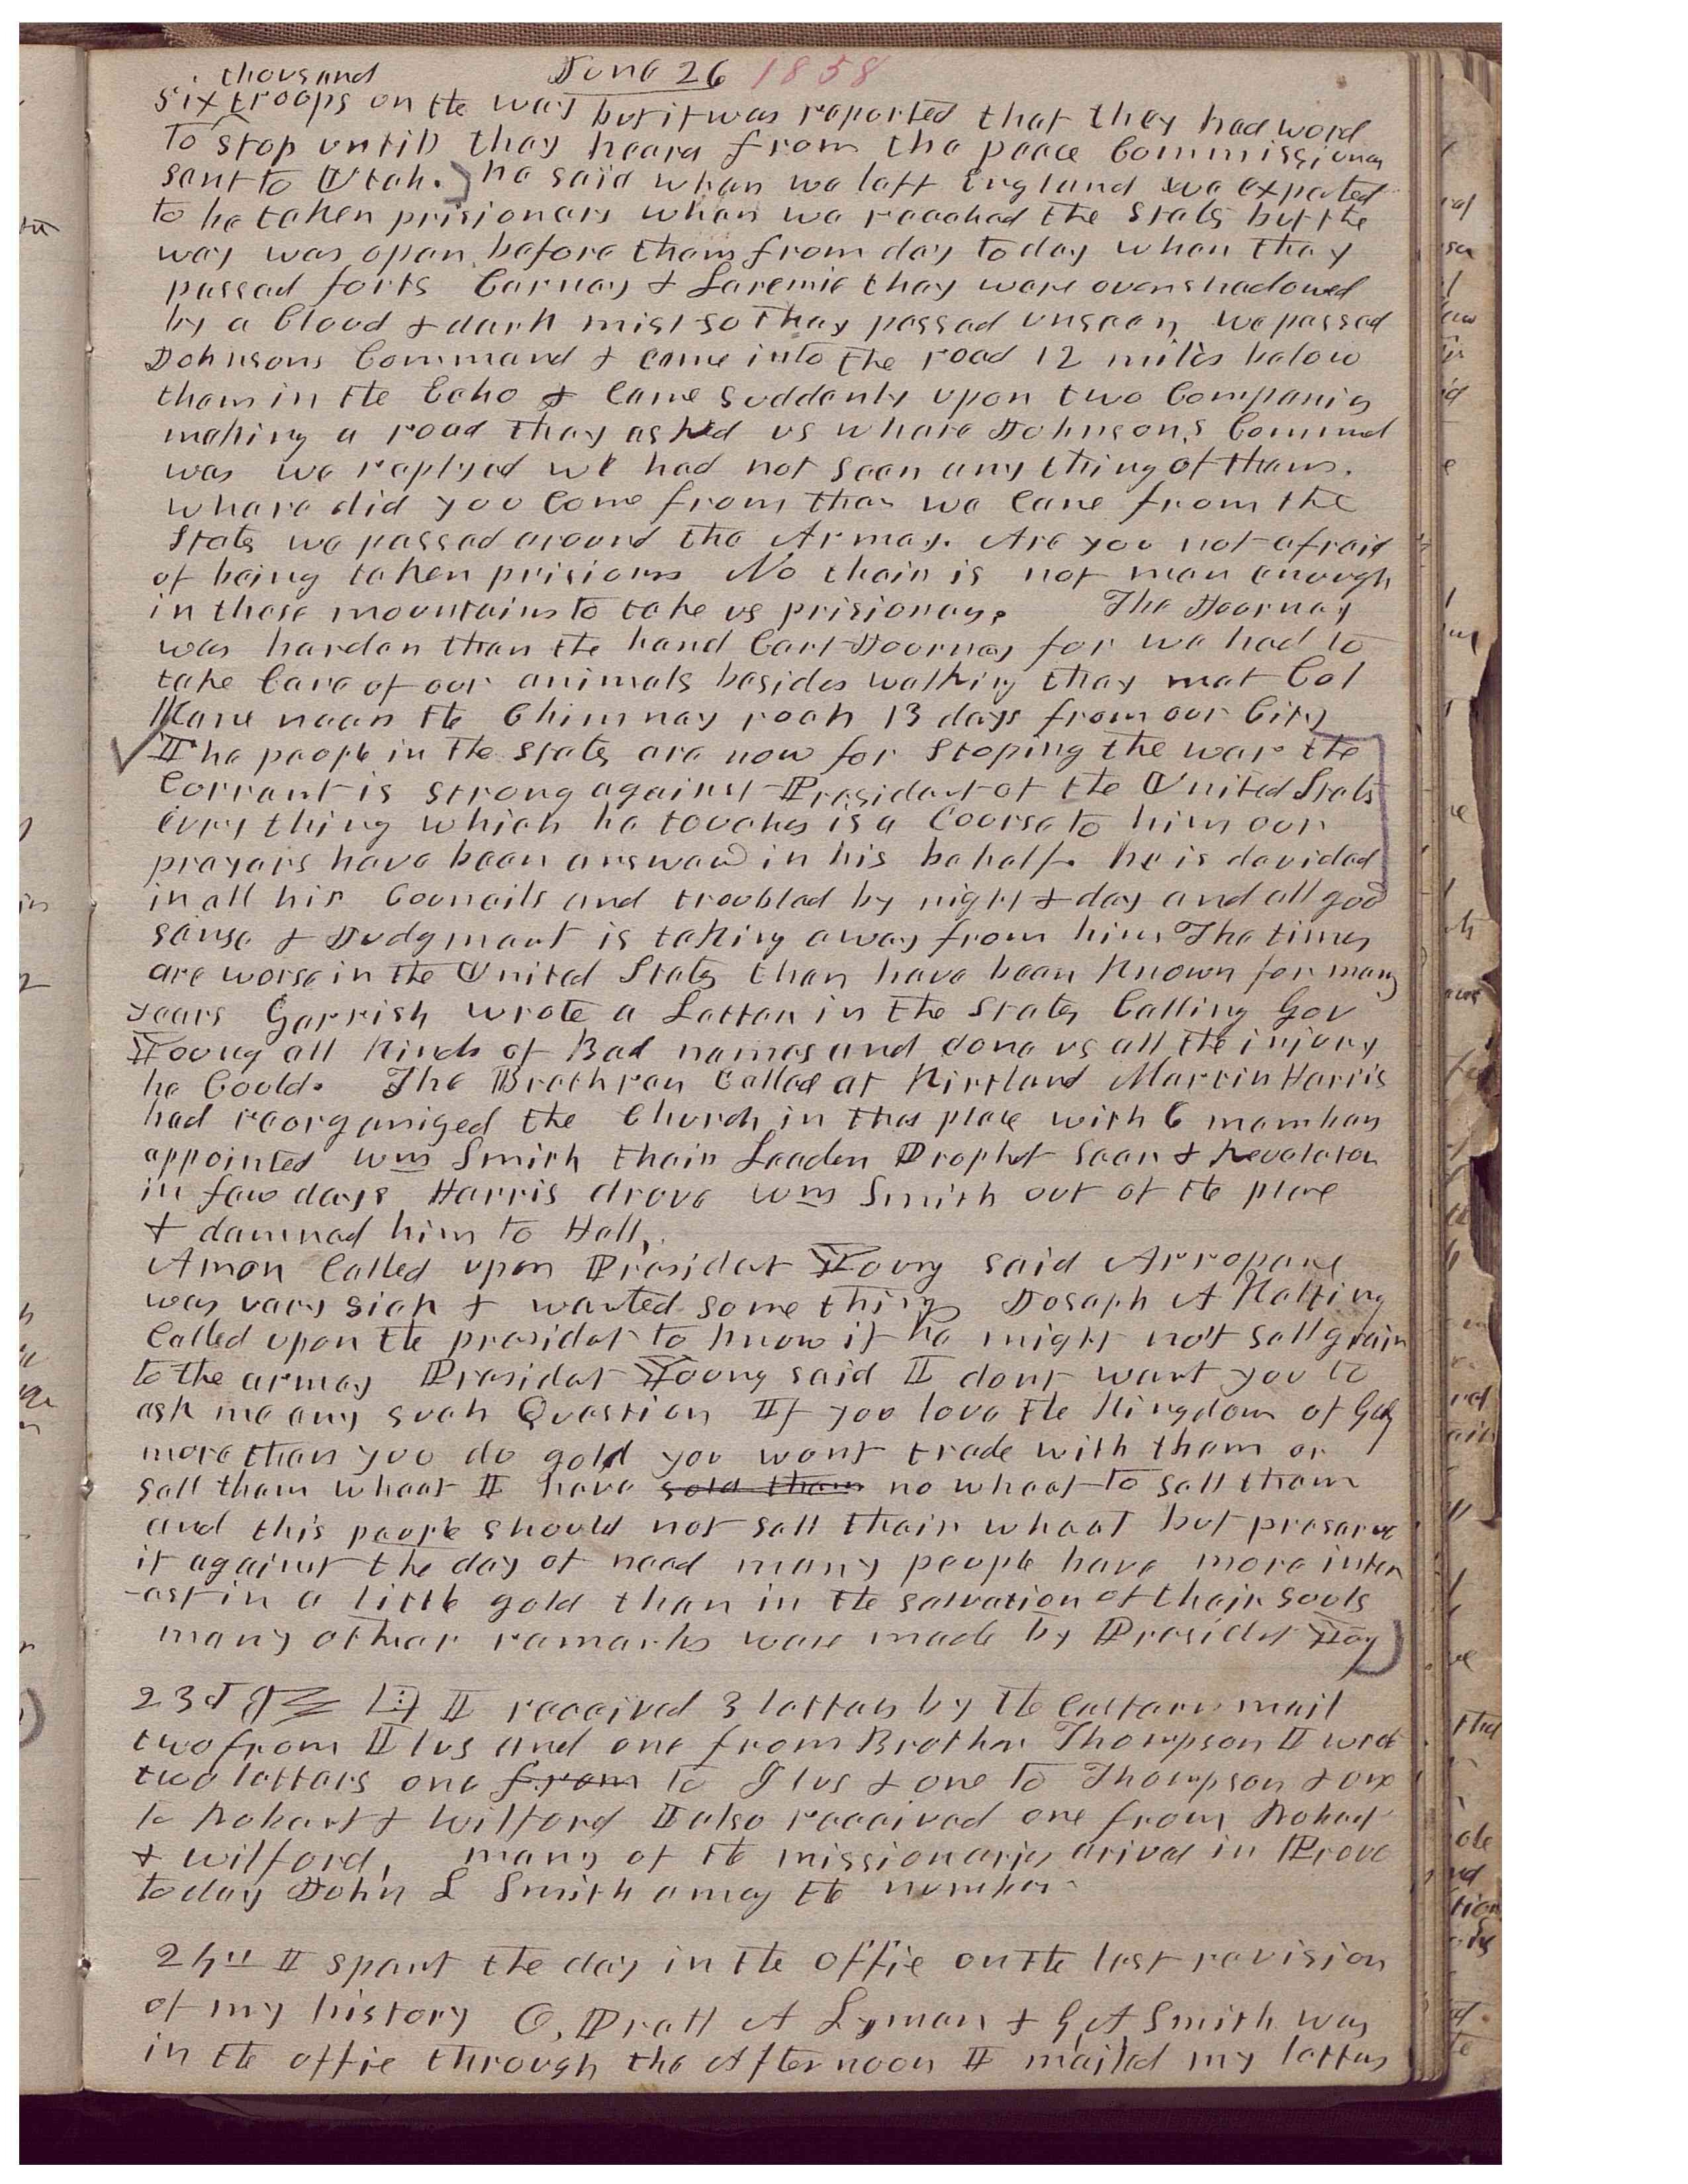 June 26 1858
thousand
six troops on the way but it was reported that they had word
To stop untill they heard from the peace Commissioners
sent to Utah. he said when we left England we expected
to be taken prisioners when we reached the States but the
way was open before them from day to day when they
passed forts Carney & Laremie they ware overshadowed
by a Cloud & dark mist so they passed unseen we passed
Johnsons Command & came into the road 12 miles below
them in the Echo & Came suddenly upon two Companies
making a road they asked us whare Johnsons Commmd
was we replyed we had not seen any thing of them.
whare did you Come from then we Came from the
States we passed around the Armey. Are you not afraid
of being taken prisions No their is not men enough
in these mountains to take us prisioners. The Journey
was harder than the hand Cart Journey for we had to
take Care of our animals besides walking they met Col
Kane near the Chimney rock 13 days from our City
The people in the States are now for Stoping the war the
Current is strong against President of the United States
evry thing which he touches is a Course to him our
prayers have been answered in his behalf. he is devided
in all his Councils and troubled by night & day and all good
sense & Judgment is taking away from him The times
are worse in the United States than have been Known for many
years Gerrish wrote a Letter in the States Calling Gov
Young all Kinds of Bad names and done us all the injury
he Could. The Brethren Called at Kirtland Martin Harris
had reorganized the Church in that place with 6 members
appointed Wm Smith their Leader Prophet Seer & Revelator
in few days Harris drove Wm Smith out of the place
& damned him to Hell,
Amon Called upon President Young said Arropane
was very sick & wanted some thing Joseph A Kelting
Called upon the president to know if he might not sell grain
to the armey President Young said I dont want you to
ask me any such Question If you love the Kingdom of God
more than you do gold you wont trade with them or
sell them wheat I have sold them no wheat to sell them
and this people should not sell their wheat but preserve
it against the day of need many people have more inter
-est in a little gold than in the salvation of their souls
many other remarks ware made by Presidet Young
23d I received 3 letters by the Eastern mail
two from Ilus and one from Brother Thompson I wrote
two letters one from to Ilus & one to Thompson & one
to Robert & Wilford I also received one from Robert
& Wilford, many of the missionaries arived in Provo
to day John L Smith among the number
24th I spent the day in the office on the last revision
of my history O. Pratt A Lyman & G A Smith was
in the office through the Afternoon I mailed my letters